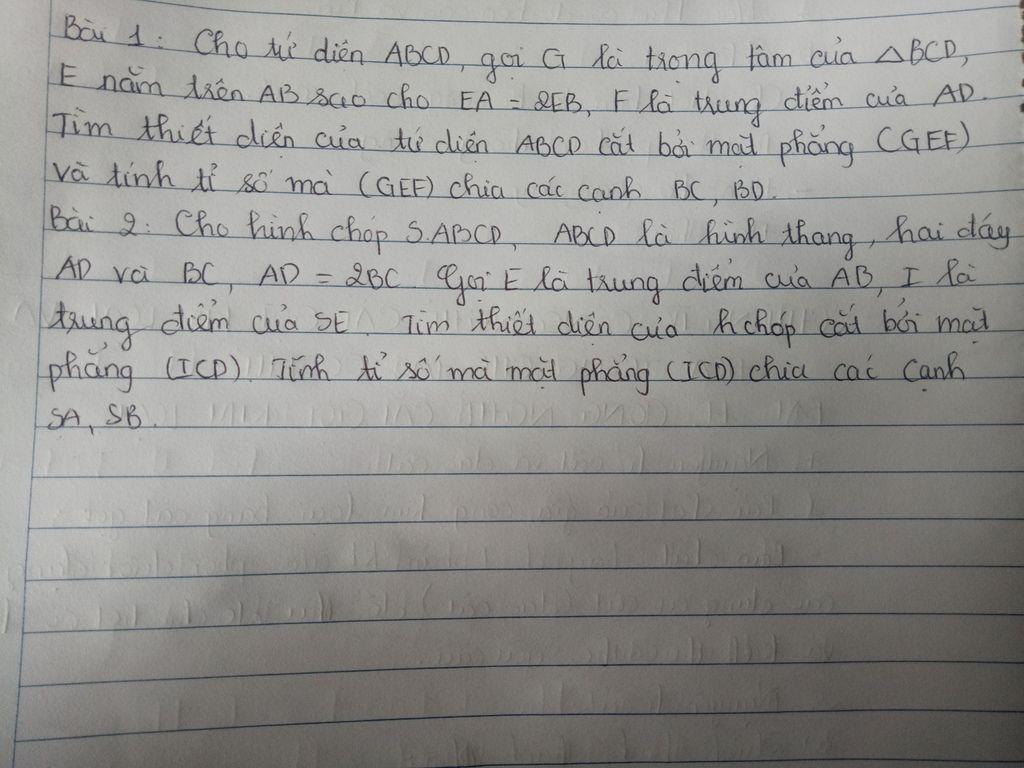 Bài 1: Cho tứ diện ABCD, gọi G là trọng tâm của △BCD,
E nằm trên AB sao cho EA = 2EB, F là trung điểm của AD.
Tìm thiết diện của tứ diện ABCD cắt bởi mặt phẳng (GEF)
và tính tỉ số mà (GEF) chia các cạnh BC, BD.
Bài 2: Cho hình chóp S.ABCD, ABCD là hình thang, hai đáy
AD và BC, AD = 2BC Gọi E là trung điểm của AB, I là
trung điểm của SE. Tìm thiết diện của hchóp cắt bởi mặt
phẳng (ICD). Tính tỉ số mà mặt phẳng (ICD) chia các cạnh
SA, SB.